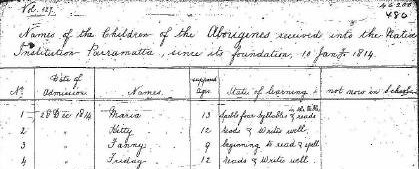 Names of the Children of the Aborigines received into the Native
Institution Parramatta, since its foundation, 10 Jany 1814.
No Date of Admission Names. suppos'd age State of Learning not now in School
1 28 Dec 1814 Maria 13 four Syllables & reads
2 " Kitty 12 reads & writes well
3 " Fanny 9 beginning to read & spell
4 " Friday 12 reads & writes well